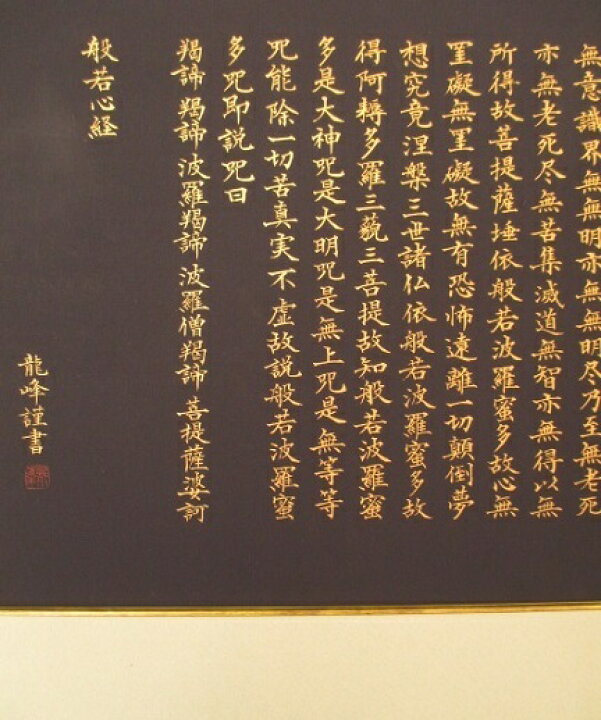 無意識界無無明亦無無明尽乃至無老死
亦無老死尽無苦集滅道無智亦無得以無
所得故菩提薩埵依般若波羅蜜多故心無
罣礙無罣礙故無有恐怖遠離一切顛倒夢
想究竟涅槃三世諸仏依般若波羅蜜多故
得阿耨多羅三藐三菩提故知般若波羅蜜
多是大神咒是大明咒是無上咒是無等等
咒能除一切苦真実不虚故説般若波羅蜜
多咒即説咒曰
羯諦羯諦波羅羯諦波羅僧羯諦 菩提薩婆訶
般若心経
龍峰謹書